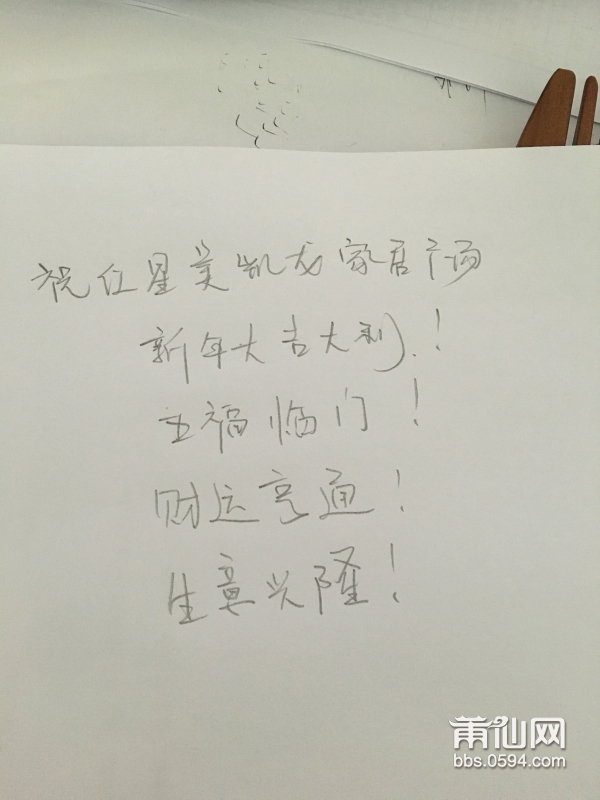 祝红星美凯龙家居广场
新年大吉大利！
五福临门！
财运亨通！
生意兴隆！
莆仙网
bbs.0594.com